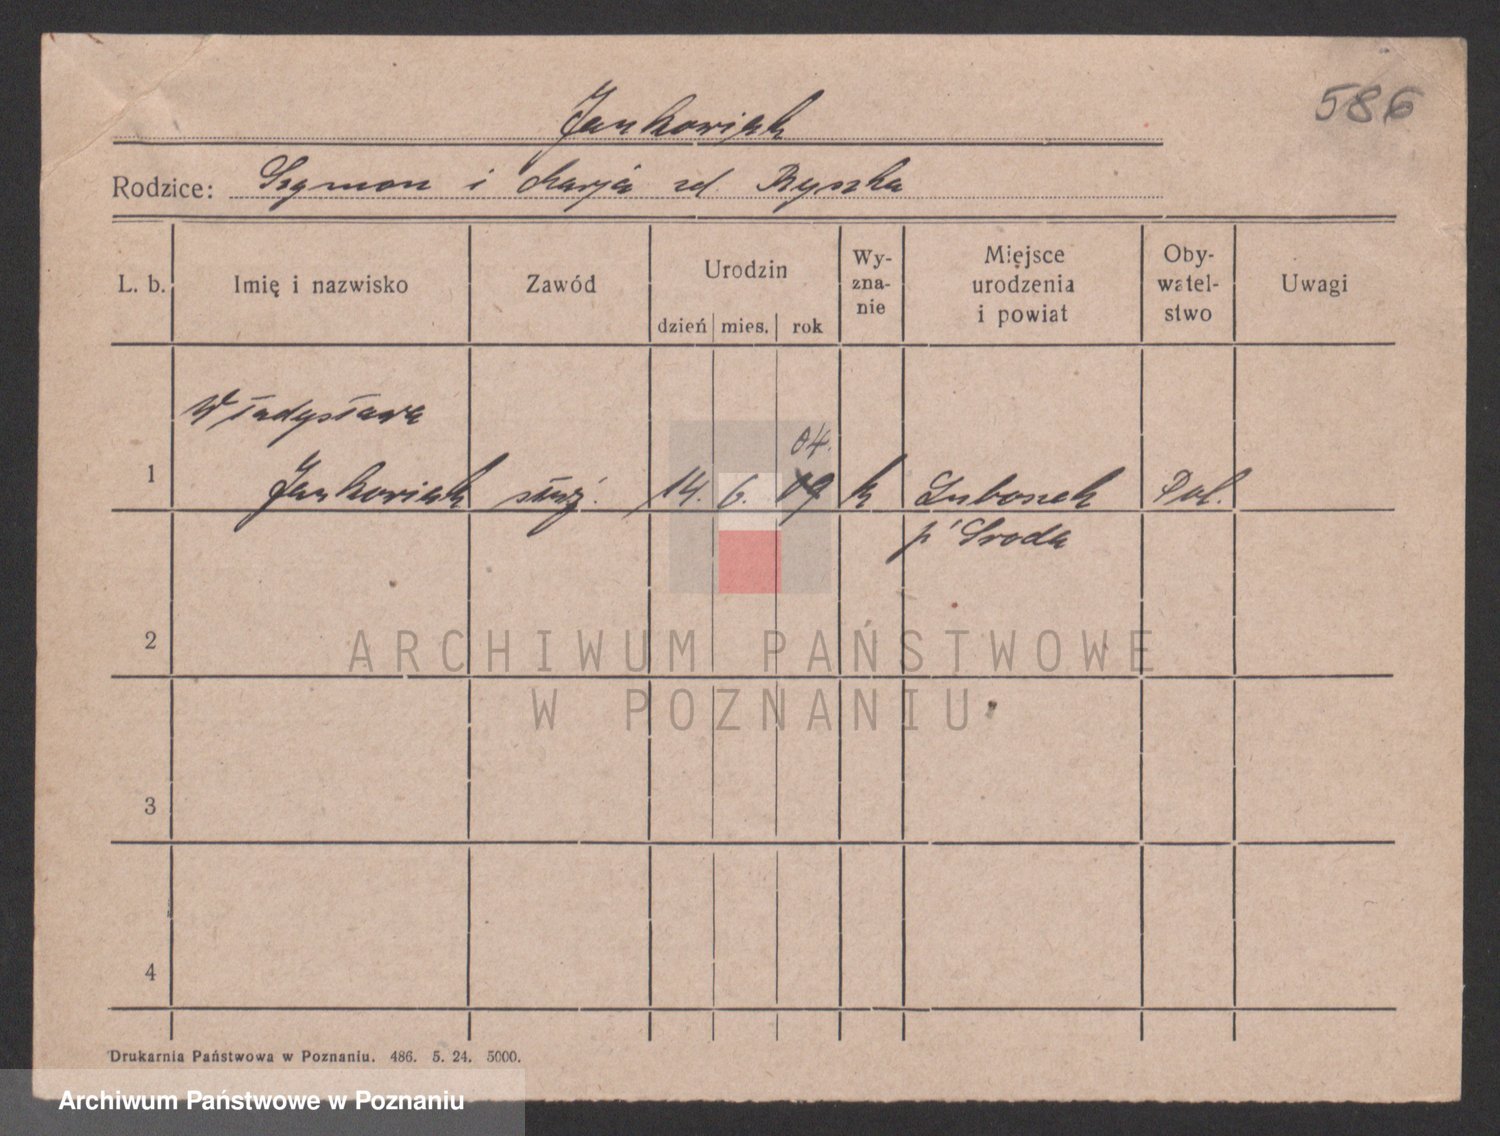 586
Jankowiak
Rodzice: Szymon i Marja zd. Ryszka
L. b. Imię i nazwisko Zawód Urodzin dzień mies. rok Wy-zna-nie Miejsce urodzenia i powiat Oby-watel-stwo Uwagi
Władysława
04.
1 Jankowiak służ. 14. 6. 09 k Pol.
p. Środa
2
3
4
Drukarnia Państwowa w Poznaniu. 486. 5. 24. 5000.
ARCHIWUM PAŃSTWOWE
W POZNANIU
Archiwum Państwowe w Poznaniu